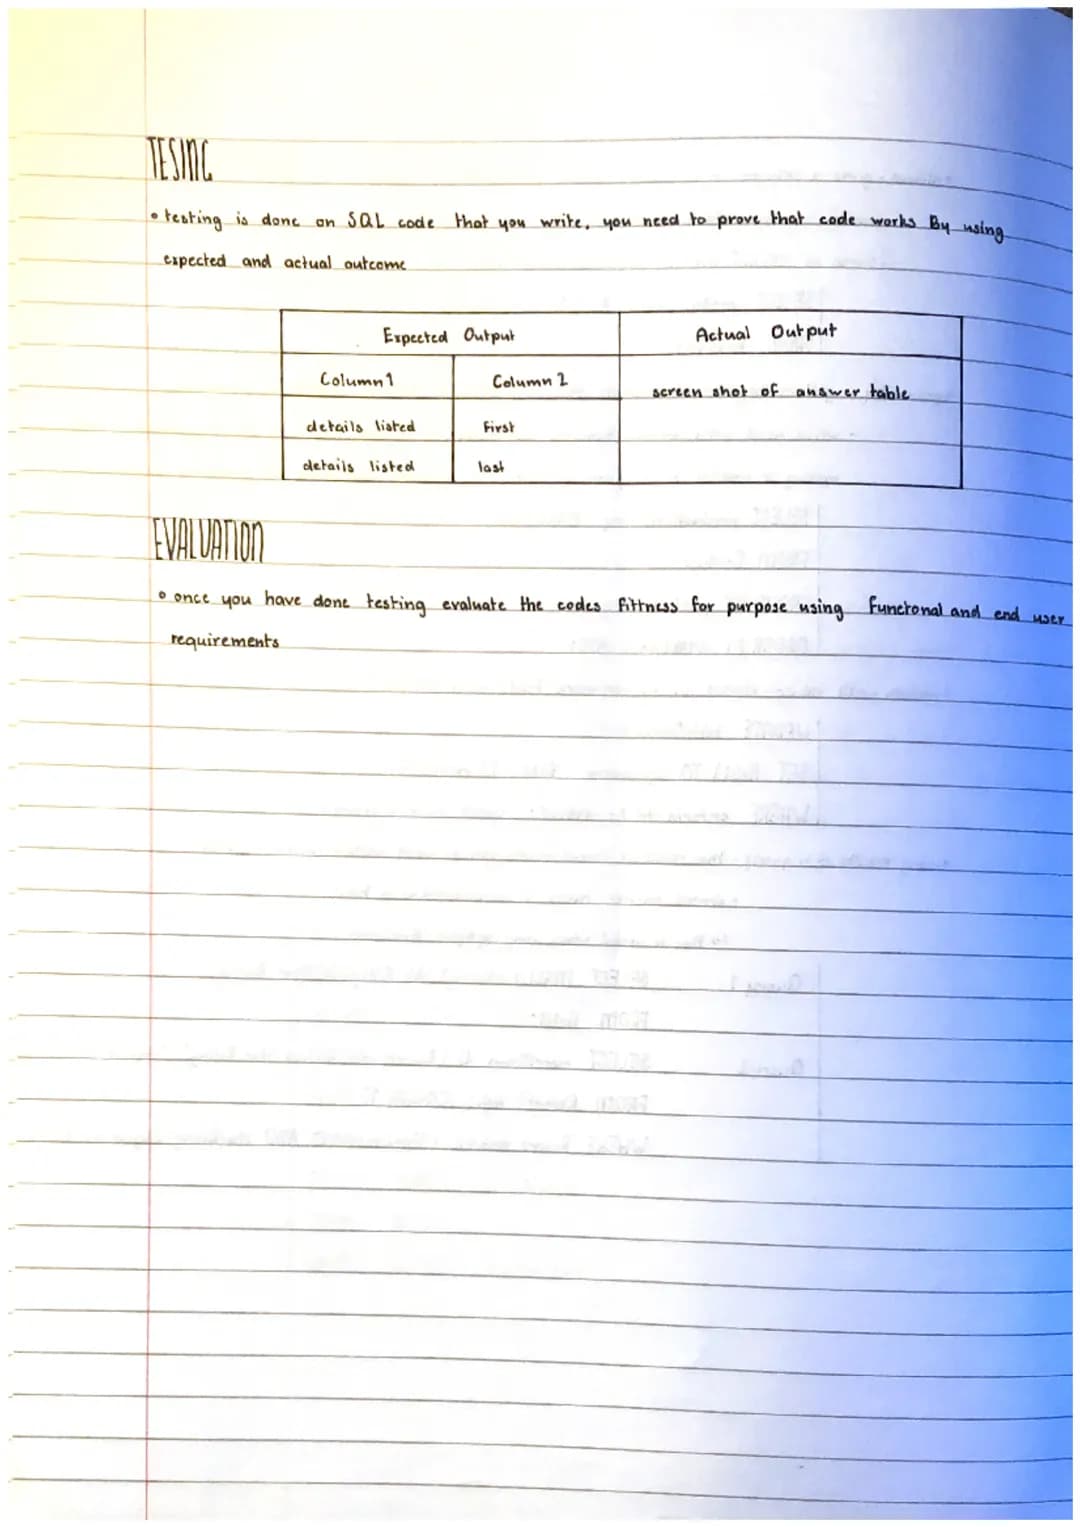 TESING
• testing is done on SQL code that you write, you need to prove that code works By using
expected and actual outcome
Expected Output Actual Output
Column 1 Column 2 screen shot of answer table
details listed First
details listed last
EVALUATION
• once you have done testing evaluate the codes fittness for purpose using functonal and end user
requirements